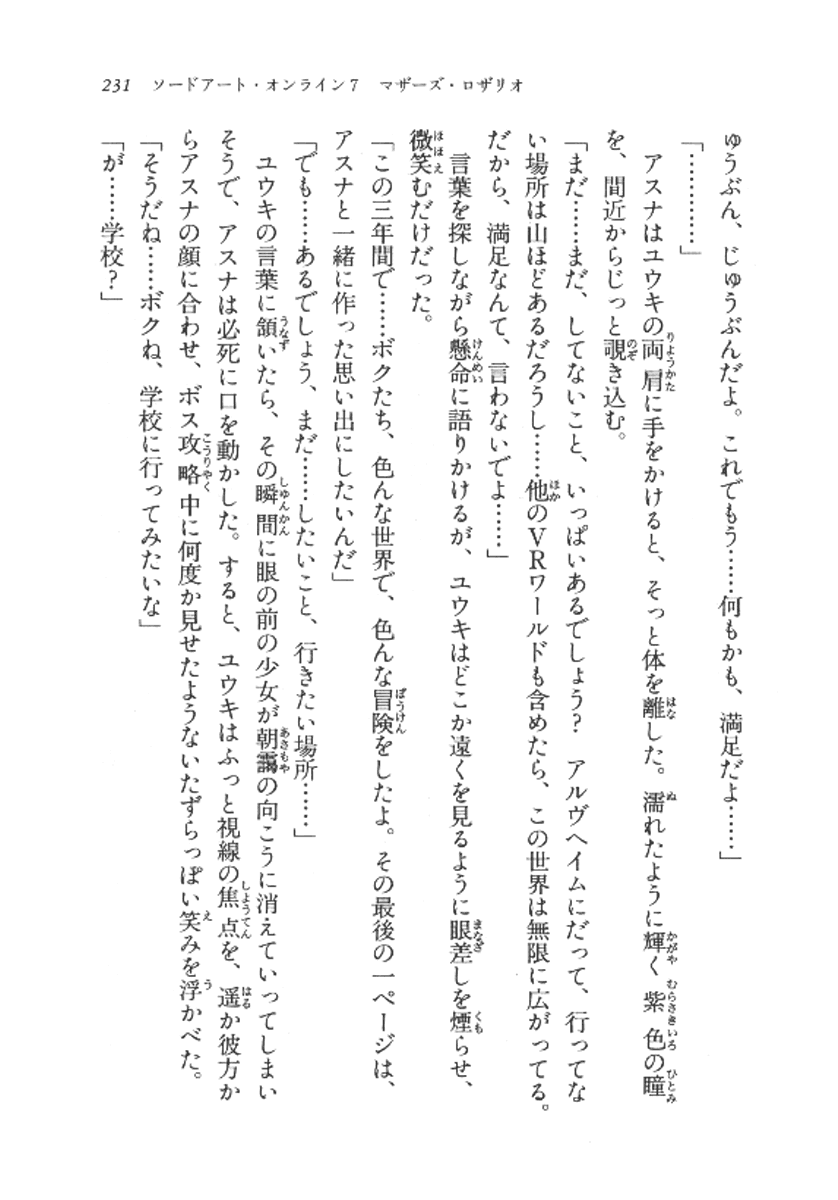 231　ソードアート・オンライン7　マザーズ・ロザリオ
ゅうぶん、じゅうぶんだよ。これでもう……何もかも、満足だよ……」
「…………」
　アスナはユウキの両肩に手をかけると、そっと体を離した。濡れたように輝く紫色の瞳
を、間近からじっと覗き込む。
「まだ……まだ、してないこと、いっぱいあるでしょう？　アルヴヘイムにだって、行ってな
い場所は山ほどあるだろうし……他のＶＲワールドも含めたら、この世界は無限に広がってる。
だから、満足なんて、言わないでよ……」
　言葉を探しながら懸命に語りかけるが、ユウキはどこか遠くを見るように眼差しを煙らせ、
微笑むだけだった。
「この三年間で……ボクたち、色んな世界で、色んな冒険をしたよ。その最後の一ページは、
アスナと一緒に作った思い出にしたいんだ」
「でも……あるでしょう、まだ……したいこと、行きたい場所……」
　ユウキの言葉に頷いたら、その瞬間に眼の前の少女が朝靄の向こうに消えていってしまい
そうで、アスナは必死に口を動かした。すると、ユウキはふっと視線の焦点を、遥か彼方か
らアスナの顔に合わせ、ボス攻略中に何度か見せたようないたずらっぽい笑みを浮かべた。
「そうだね……ボクね、学校に行ってみたいな」
「が……学校？」